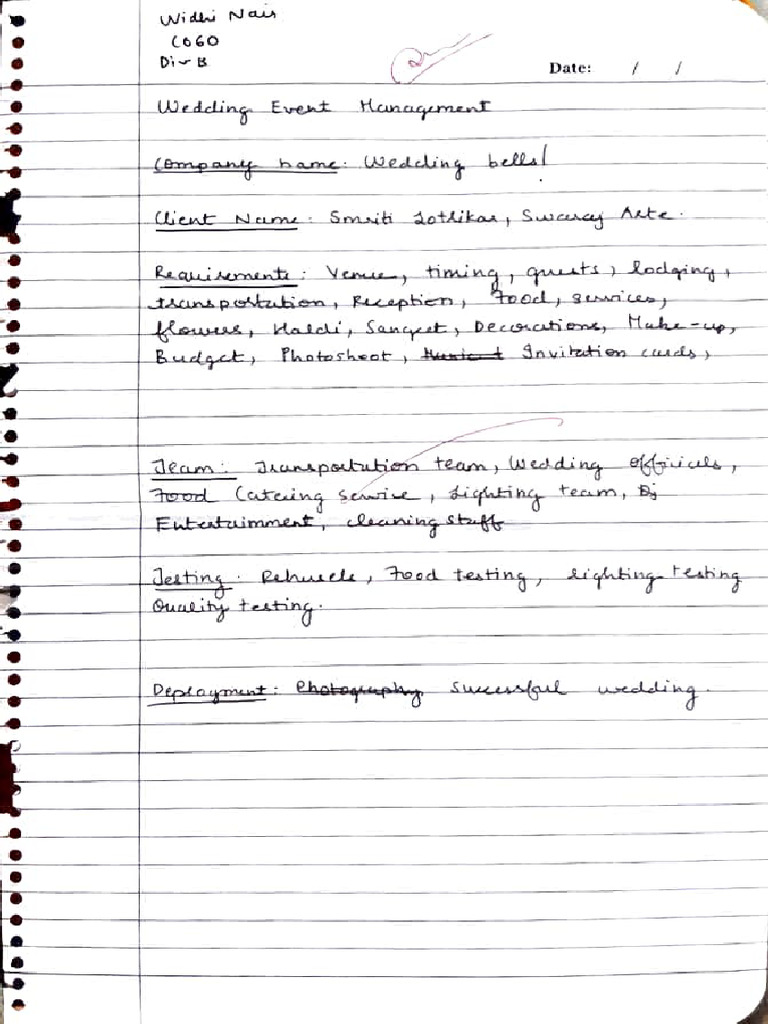 Widhi Nair
C060
Div B
Date: / /
Wedding Event Management
Company name: Wedding bells!
Client Name: Smriti Lothikar, Swaraj Arte.
Requirements: Venue, timing, guests, lodging,
transportation, Reception, Food, services,
flowers, Haldi, Sangeet, Decorations, Make-up,
Budget, Photoshoot, Invitation cards,
Team: Transportation team, Wedding officials,
Food Catering service, Lighting team, Dj
Entertainment, cleaning staff
Testing: Rehusele, Food testing, Lighting testing
Quality testing.
Deployment: Photography successful wedding.